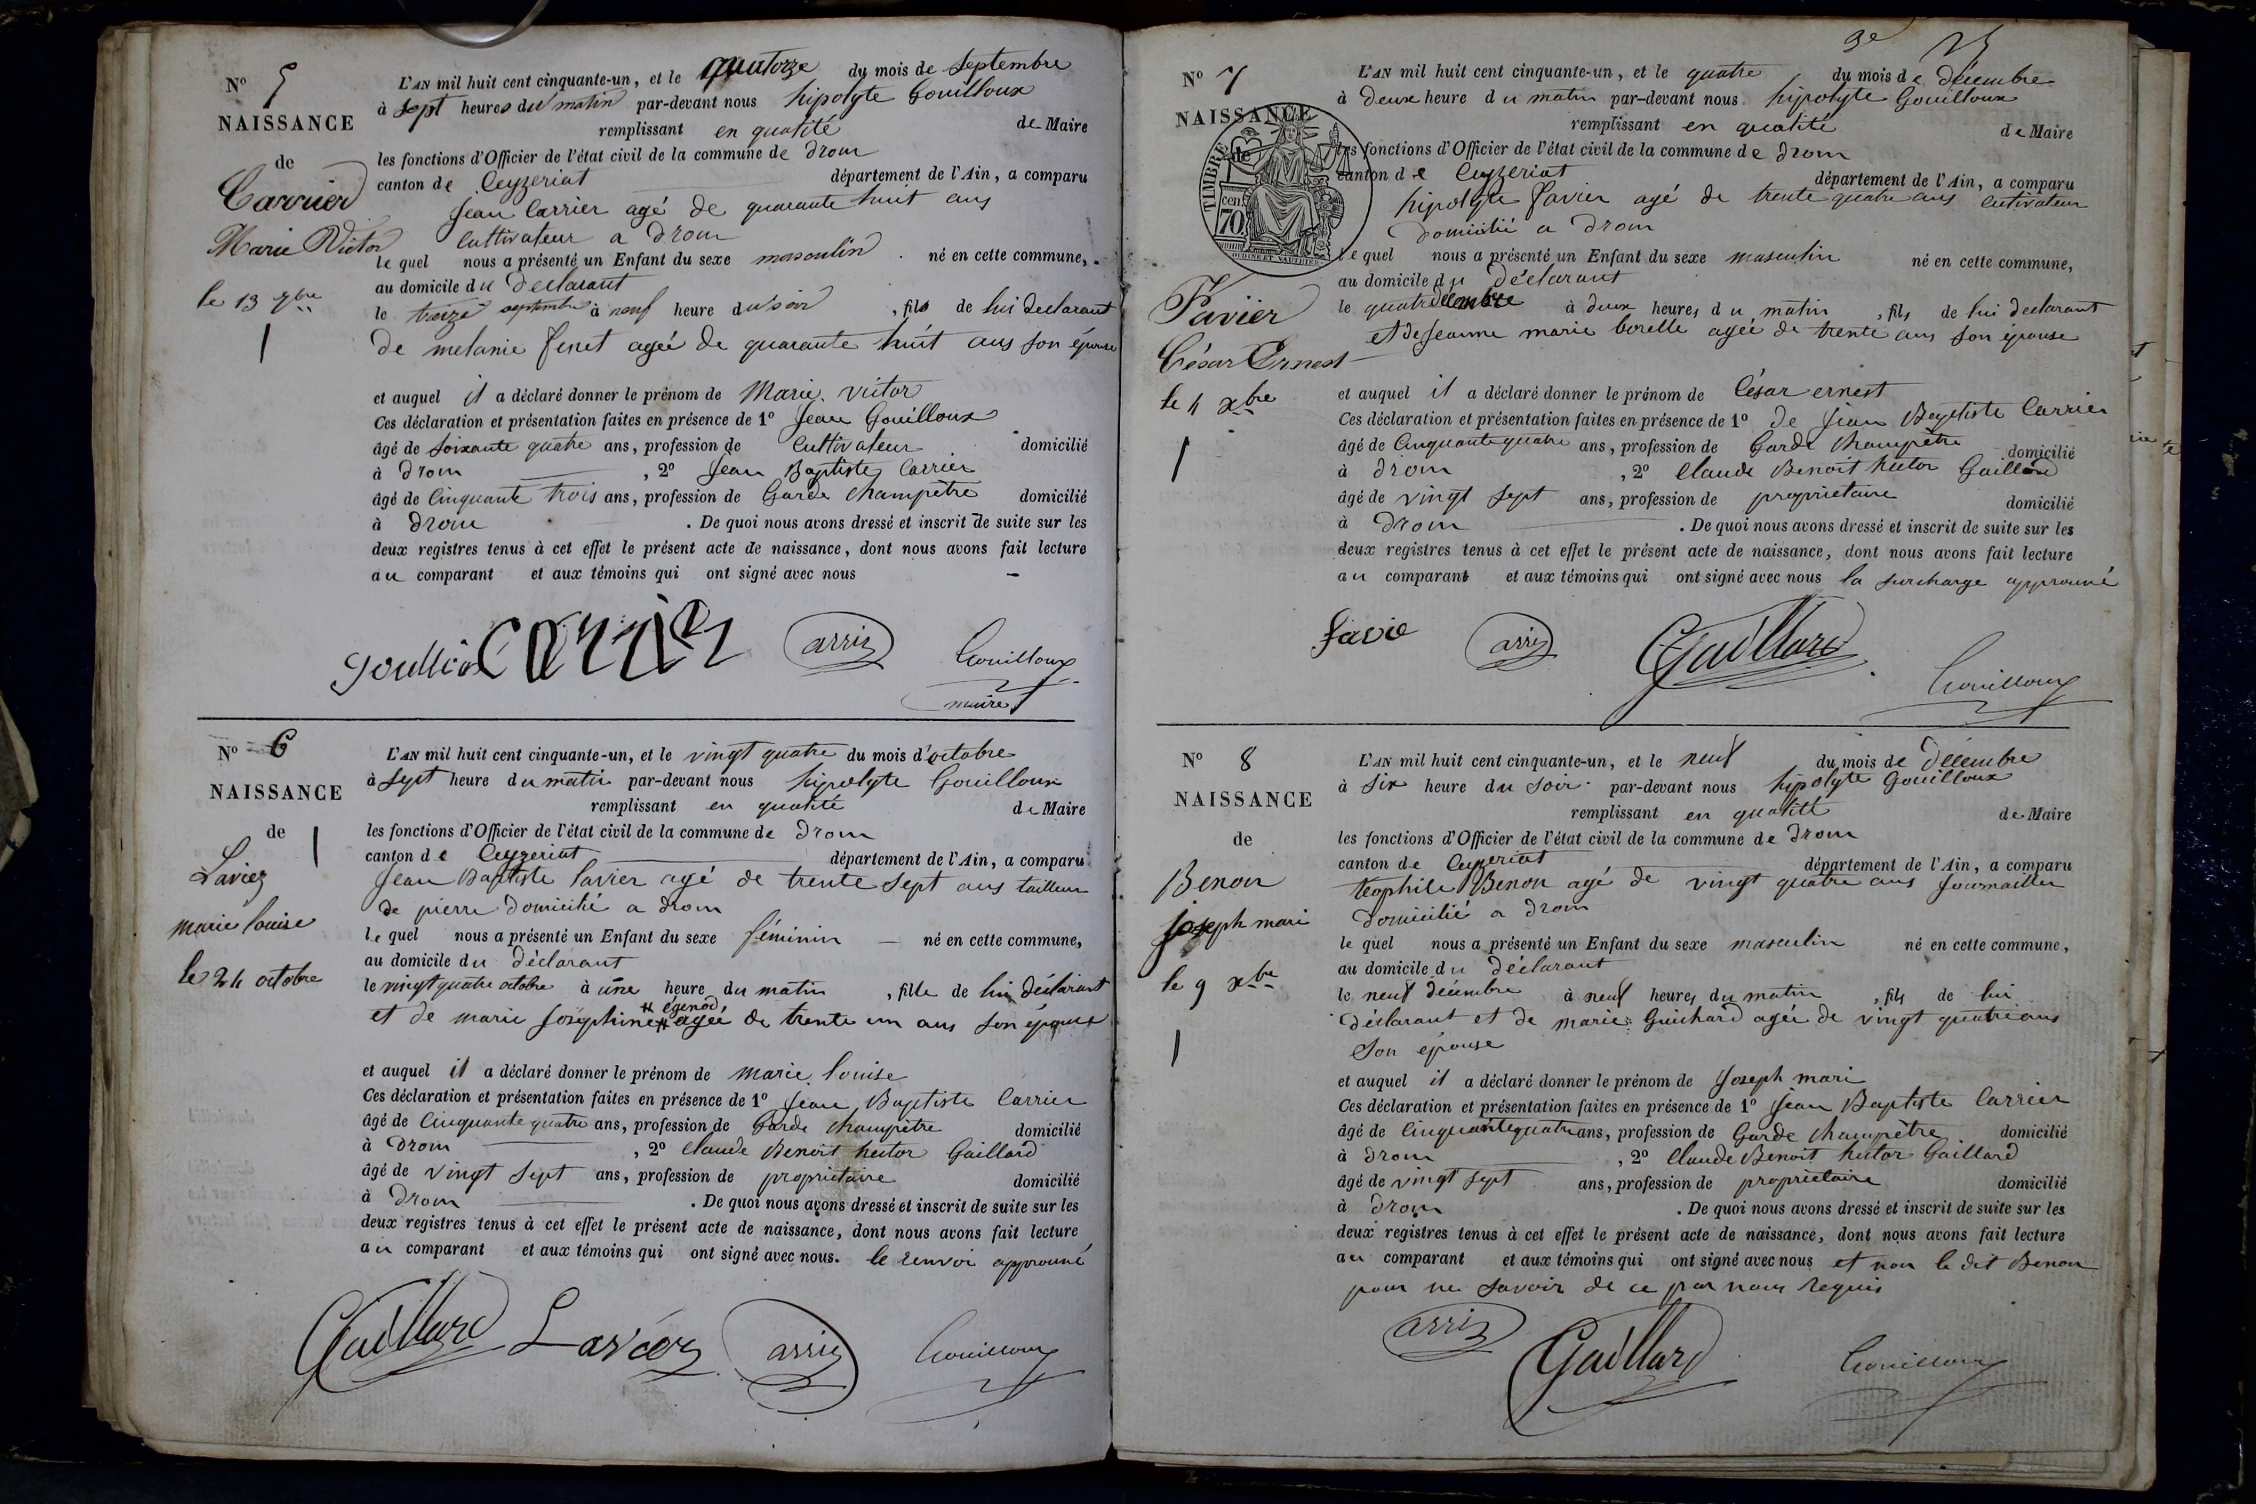 N° 5
NAISSANCE
de
Carrier
Marie Victor
le 13 7bre
L'AN mil huit cent cinquante-un, et le quatorze du mois de Septembre
à sept heures du matin par-devant nous hipolyte Gouilloux
remplissant en qualité de Maire
les fonctions d'Officier de l'état civil de la commune de drom
canton de Ceyzeriat département de l'Ain, a comparu
Jean Carrier agé de quarante huit ans
Cultivateur a drom
le quel nous a présenté un Enfant du sexe masculin né en cette commune,
au domicile du declarant
le treize septembre à neuf heure du soir, fils de lui declarant
de melanie feret ageé de quarante huit ans son épouse
et auquel il a déclaré donner le prénom de Marie victor
Ces déclaration et présentation faites en présence de 1° Jean Gouilloux
âgé de Soixante quatre ans, profession de Cultivateur domicilié
à drom, 2° Jean Baptiste Carrier
âgé de Cinquante trois ans, profession de Garde champêtre domicilié
à drom. De quoi nous avons dressé et inscrit de suite sur les
deux registres tenus à cet effet le présent acte de naissance, dont nous avons fait lecture
au comparant et aux témoins qui ont signé avec nous
arrier Gouilloux
maire
N° 6
NAISSANCE
de
Lavier
marie louise
le 24 octobre
L'AN mil huit cent cinquante-un, et le vingt quatre du mois d'octobre
à sept heure du matin par-devant nous hipolyte Gouilloux
remplissant en qualité de Maire
les fonctions d'Officier de l'état civil de la commune de drom
canton de Ceyzeriat département de l'Ain, a comparu
Jean Baptiste lavier agé de trente sept ans tailleur
de pierre domicilié a drom
le quel nous a présenté un Enfant du sexe féminin né en cette commune,
au domicile du déclarant
le vingt quatre octobre à une heure du matin, fille de lui déclarant
et de marie Joséphine # # egenod ageé de trente un ans son épouse
et auquel il a déclaré donner le prénom de marie louise
Ces déclaration et présentation faites en présence de 1° Jean Baptiste Carrier
âgé de Cinquante quatre ans, profession de Garde champêtre domicilié
à drom, 2° Claude Benoit hector Gaillard
âgé de vingt sept ans, profession de propriétaire domicilié
à drom. De quoi nous avons dressé et inscrit de suite sur les
deux registres tenus à cet effet le présent acte de naissance, dont nous avons fait lecture
au comparant et aux témoins qui ont signé avec nous. le renvoi approuvé
Gaillard Lavier arrier Gouilloux
3e 25
N° 7
NAISSANCE
de
TIMBRE
cen. 70
OUDINE ET VAUTHIER
Favier
César Ernest
le 4 xbre
L'AN mil huit cent cinquante-un, et le quatre du mois de décembre
à deux heure du matin par-devant nous hipolyte Gouilloux
remplissant en qualité de Maire
les fonctions d'Officier de l'état civil de la commune de drom
canton de Ceyzeriat département de l'Ain, a comparu
hipolyte favier agé de trente quatre ans cultivateur
domicilié a drom
le quel nous a présenté un Enfant du sexe masculin né en cette commune,
au domicile du déclarant
le quatre décembre à deux heures du matin, fils de lui declarant
et de Jeanne marie borelle ageé de trente ans son épouse
et auquel il a déclaré donner le prénom de César ernest
Ces déclaration et présentation faites en présence de 1° de Jean Baptiste Carrier
âgé de Cinquante quatre ans, profession de Garde champêtre domicilié
à drom, 2° Claude Benoit hector Gaillard
âgé de vingt sept ans, profession de propriétaire domicilié
à drom. De quoi nous avons dressé et inscrit de suite sur les
deux registres tenus à cet effet le présent acte de naissance, dont nous avons fait lecture
au comparant et aux témoins qui ont signé avec nous la surcharge approuvé
favie arrier Gaillard Gouilloux
N° 8
NAISSANCE
de
Benon
Joseph mari
le 9 xbre
L'AN mil huit cent cinquante-un, et le neuf du mois de décembre
à six heure du soir par-devant nous hipolyte Gouilloux
remplissant en qualité de Maire
les fonctions d'Officier de l'état civil de la commune de drom
canton de Ceyzeriat département de l'Ain, a comparu
teophile Benon agé de vingt quatre ans journailler
domicilié a drom
le quel nous a présenté un Enfant du sexe masculin né en cette commune,
au domicile du déclarant
le neuf décembre à neuf heures du matin, fils de lui
déclarant et de marie Guichard ageé de vingt quatre ans
son épouse
et auquel il a déclaré donner le prénom de Joseph mari
Ces déclaration et présentation faites en présence de 1° Jean Baptiste Carrier
âgé de Cinquante quatre ans, profession de Garde champêtre domicilié
à drom, 2° Claude Benoit hector Gaillard
âgé de vingt sept ans, profession de propriétaire domicilié
à drom. De quoi nous avons dressé et inscrit de suite sur les
deux registres tenus à cet effet le présent acte de naissance, dont nous avons fait lecture
au comparant et aux témoins qui ont signé avec nous et non le dit Benon
pour ne savoir de ce par nous requis
arrier Gaillard Gouilloux